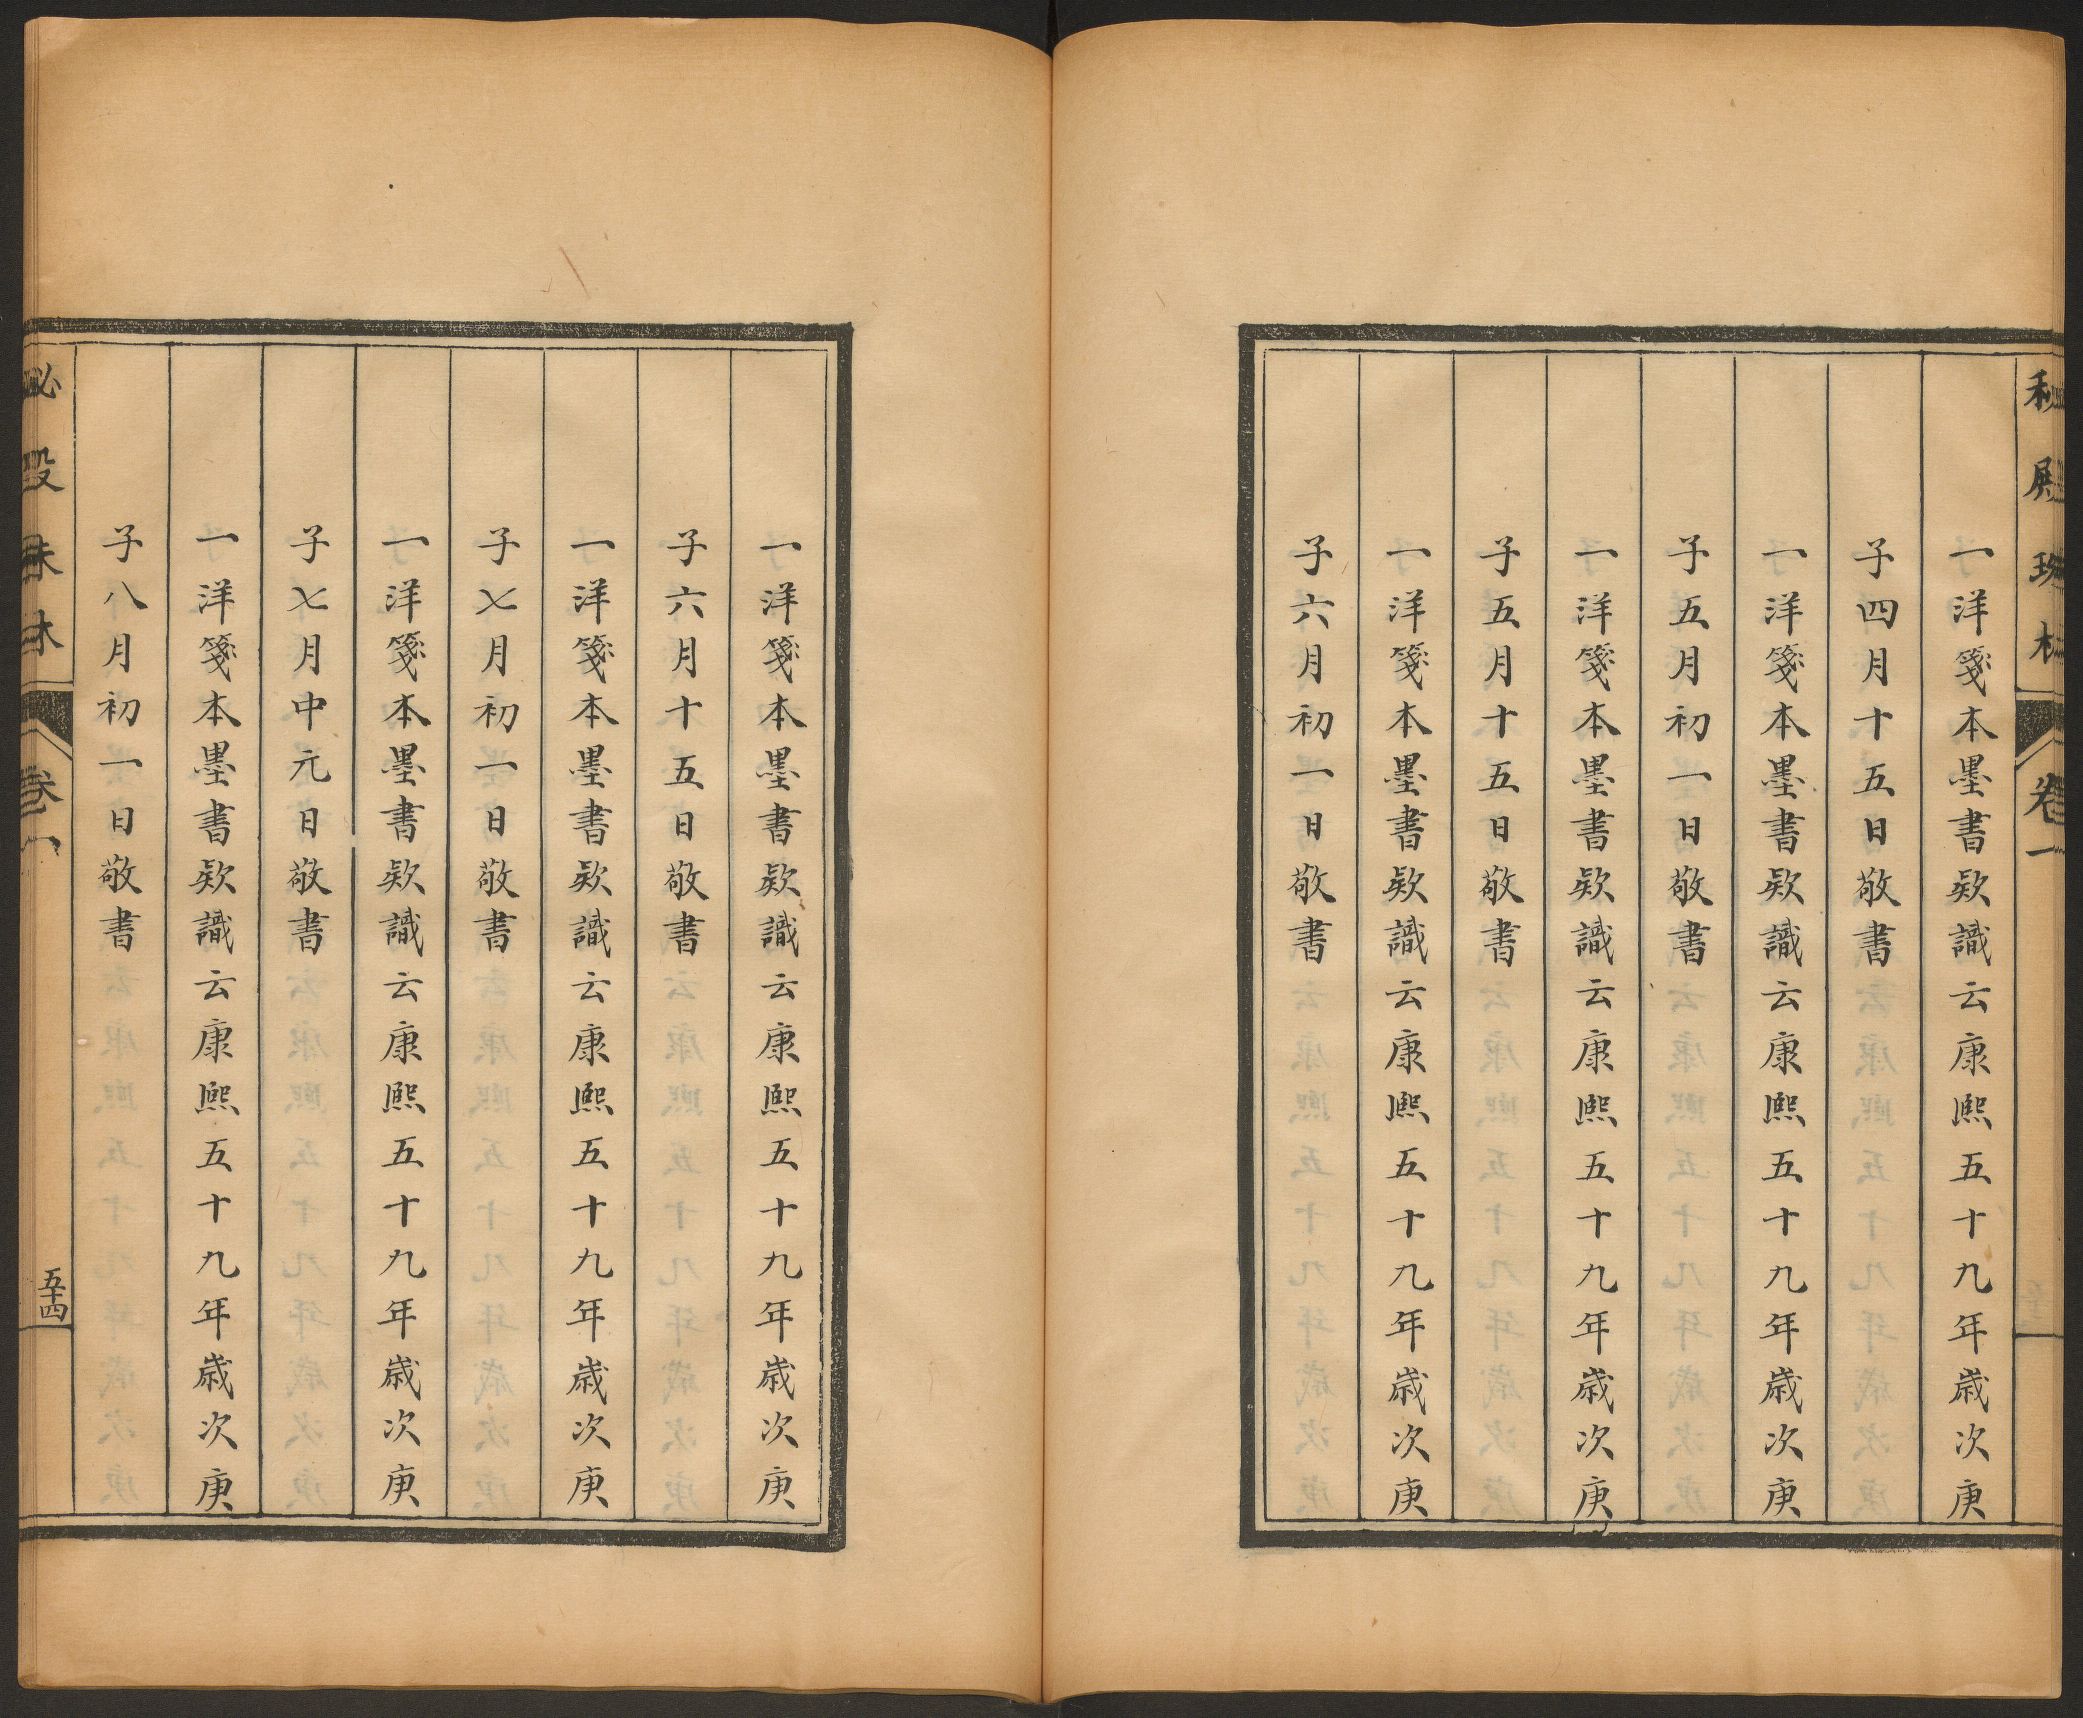 秘殿珠林 卷一
一洋箋本墨書欵識云康熙五十九年歲次庚
子四月十五日敬書
一洋箋本墨書欵識云康熙五十九年歲次庚
子五月初一日敬書
一洋箋本墨書欵識云康熙五十九年歲次庚
子五月十五日敬書
一洋箋本墨書欵識云康熙五十九年歲次庚
子六月初一日敬書
一洋箋本墨書欵識云康熙五十九年歲次庚
子六月十五日敬書
一洋箋本墨書欵識云康熙五十九年歲次庚
子七月初一日敬書
一洋箋本墨書欵識云康熙五十九年歲次庚
子七月中元日敬書
一洋箋本墨書欵識云康熙五十九年歲次庚
子八月初一日敬書
秘殿珠林 卷一 五十四